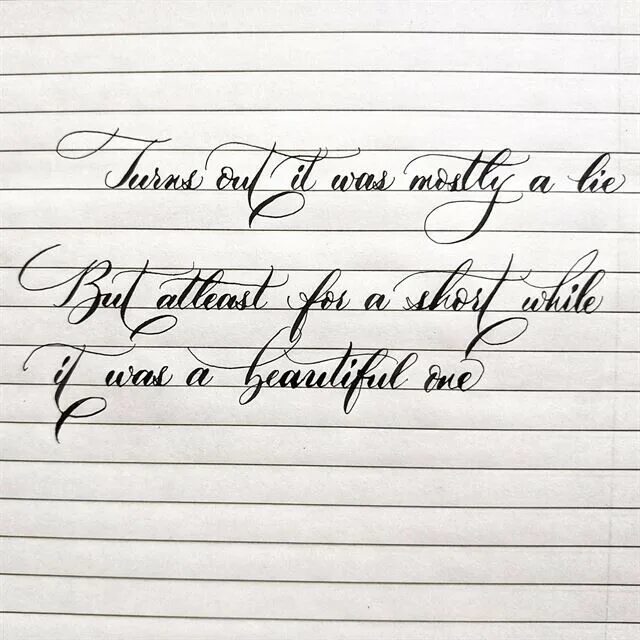 Turns out it was mostly a lie
But atleast for a short while
it was a beautiful one